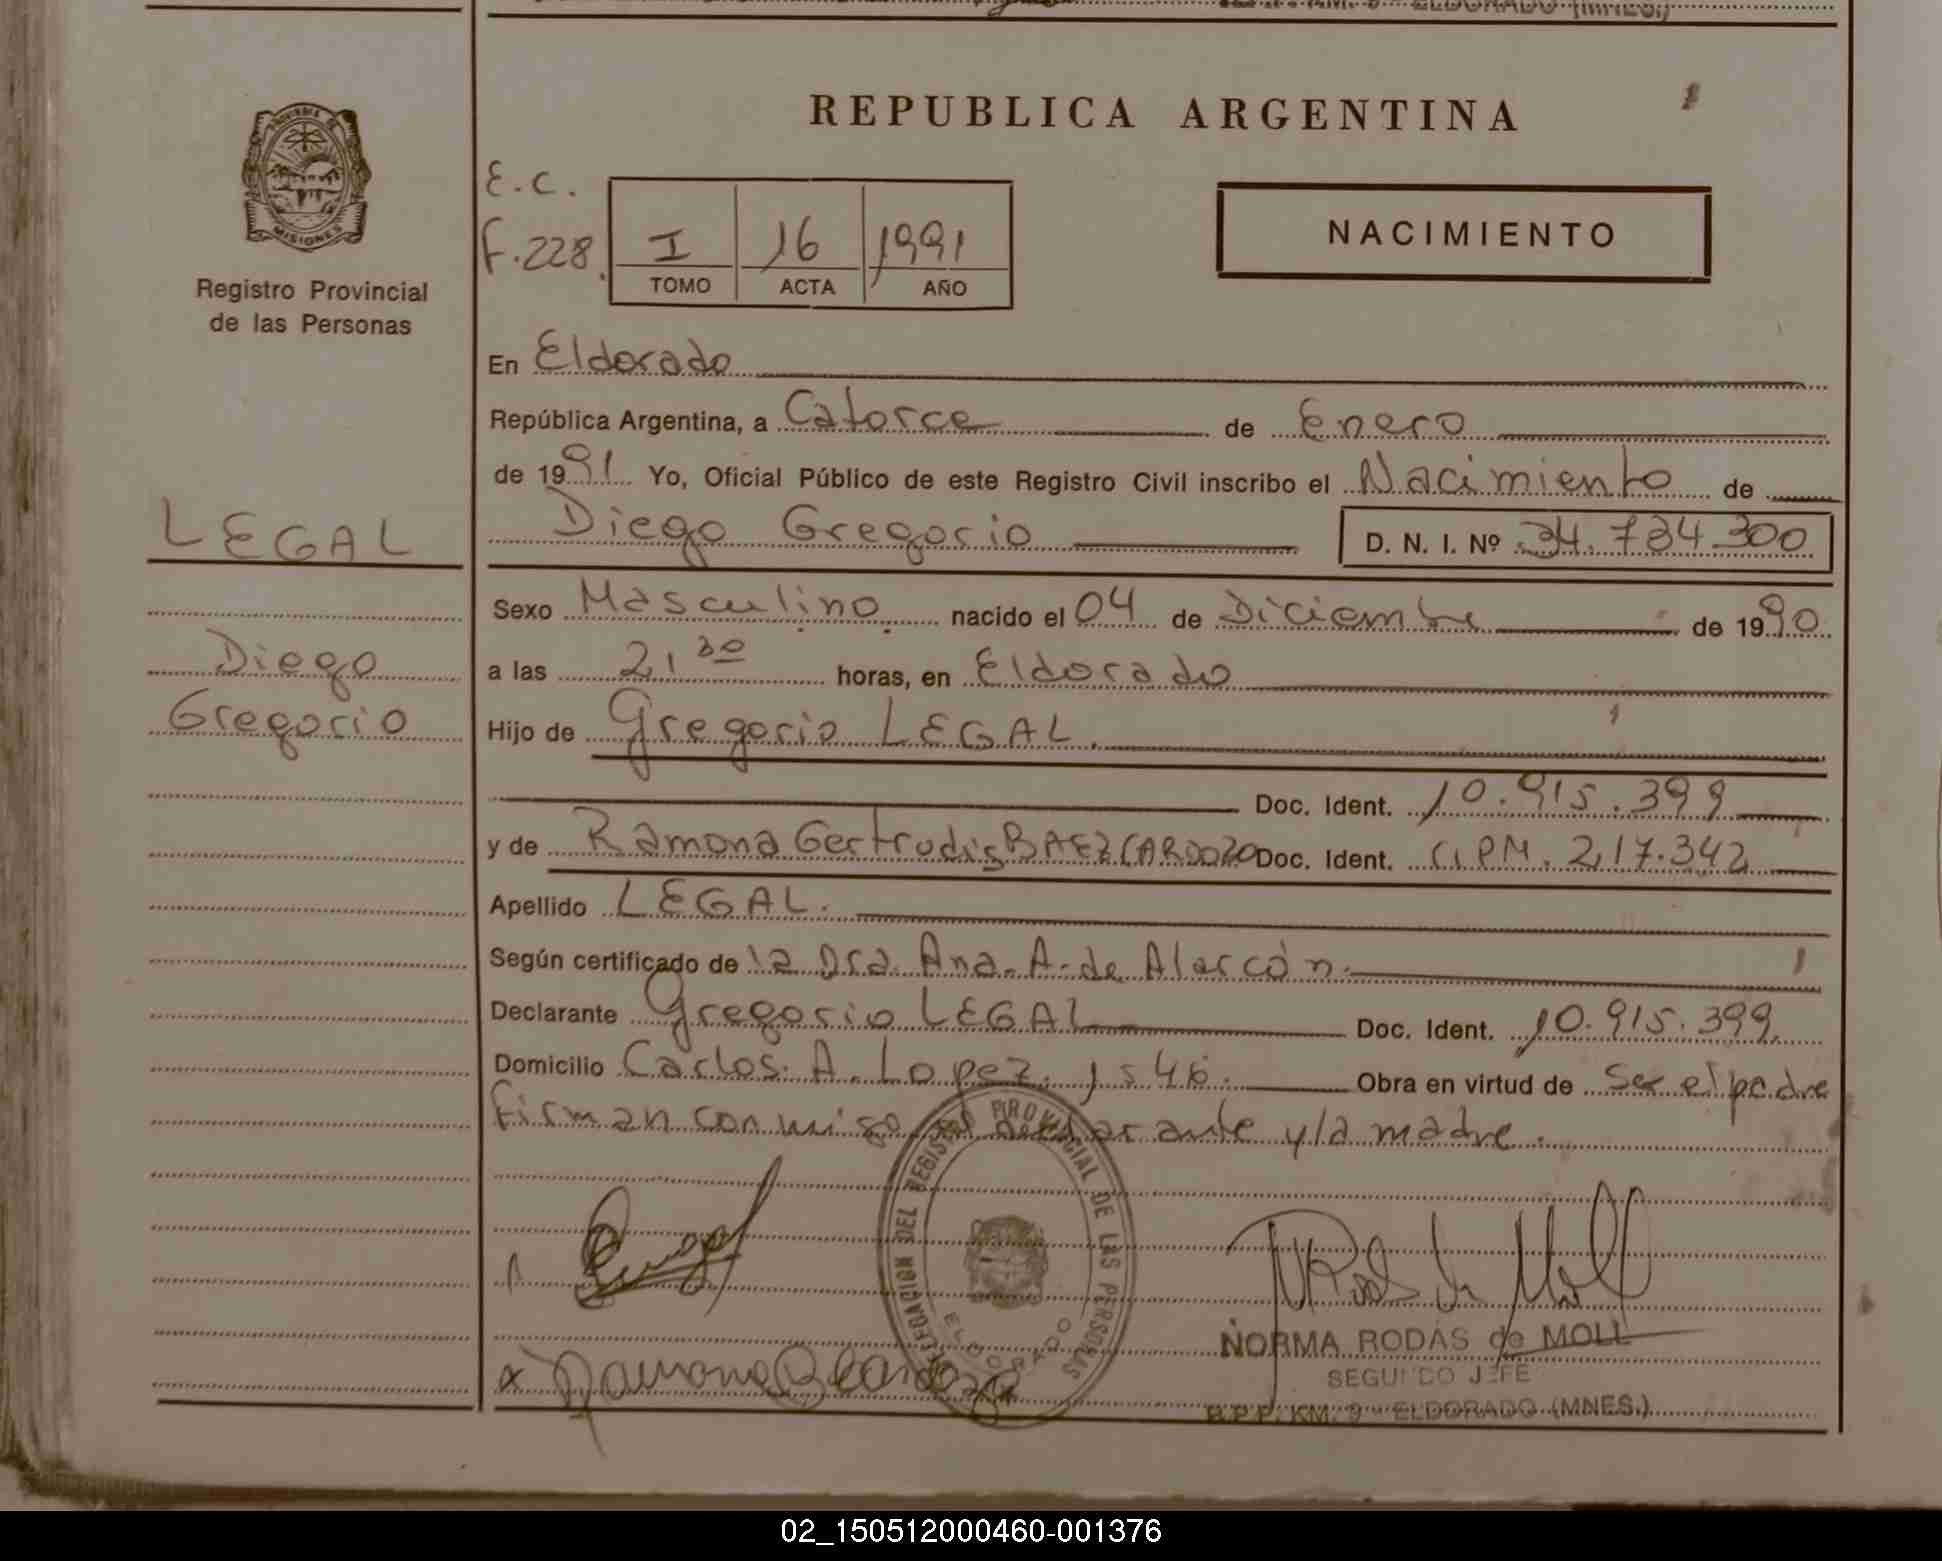 ELDORADO (MNES.)
REPUBLICA ARGENTINA
MISIONES
Registro Provincial
de las Personas
E.C.
F.228.
I 16 1991
TOMO ACTA AÑO
NACIMIENTO
En Eldorado
República Argentina, a Catorce de Enero
de 1991 Yo, Oficial Público de este Registro Civil inscribo el Nacimiento de
LEGAL
Diego Gregorio D. N. I. Nº 34.734.300
Sexo Masculino nacido el 04 de Diciembre de 1990
Diego
Gregorio
a las 21 30 horas, en Eldorado
Hijo de Gregorio LEGAL.
Doc. Ident. 10.915.399
y de Ramona Gertrudis BAEZ CARDOZO Doc. Ident. C.I.P.M. 217.342
Apellido LEGAL.
Según certificado de la Dra. Ana. A. de Alarcón.
Declarante Gregorio LEGAL Doc. Ident. 10.915.399.
Domicilio Carlos. A. Lopez. 1546. Obra en virtud de ser el padre
Firman conmigo el declarante y la madre.
DELEGACION DEL REGISTRO PROVINCIAL DE LAS PERSONAS
ELDORADO
NORMA RODAS de MOLL
SEGUNDO JEFE
R.P.P. KM. 9 - ELDORADO (MNES.)
02_150512000460-001376